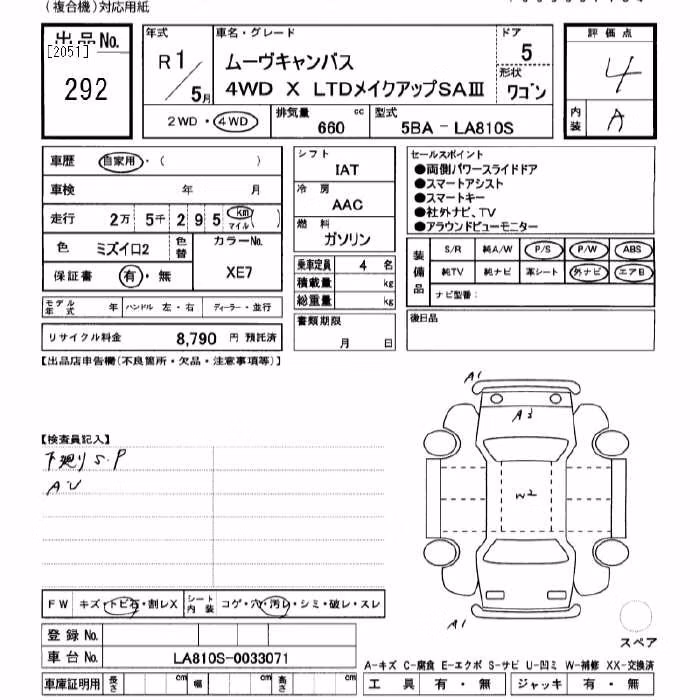 （複合機）対応用紙
出品No.
[2051]
292
年式
R 1 / 5月
車名・グレード
ムーヴキャンバス
4WD X LTDメイクアップSAⅢ
ドア
5
形状
ワゴン
2WD・4WD
排気量 660 cc
型式 5BA - LA810S
評価点
4
内装 A
車歴 自家用・（ ）
車検 年 月
走行 2万 5千 2 9 5 km マイル( )
色 ミズイロ2 色替 カラーNo. XE7
保証書 有・無
モデル年式 年 ハンドル 左・右 ディーラー・並行
リサイクル料金 8,790 円 預託済
シフト
IAT
冷房
AAC
燃料
ガソリン
乗車定員 4 名
積載量 kg
総重量 kg
書類期限
月 日
セールスポイント
●両側パワースライドドア
●スマートアシスト
●スマートキー
●社外ナビ、TV
●アラウンドビューモニター
装備品
S/R 純A/W P/S P/W ABS
純TV 純ナビ 革シート 外ナビ エアB
ナビ型番：
後日品
【出品店申告欄（不良箇所・欠品・注意事項等）】
【検査員記入】
下廻りS.P
AU
A1
A3
W2
A1
スペア
FW キズ・トビ石・割レX シート内装 コゲ・穴・汚レ・シミ・破レ・スレ
登録No.
車台No. LA810S-0033071
車庫証明用 長さ cm 幅 cm 高さ cm
A-キズ C-腐食 E-エクボ S-サビ U-凹ミ W-補修 XX-交換済
工具 有・無 ジャッキ 有・無